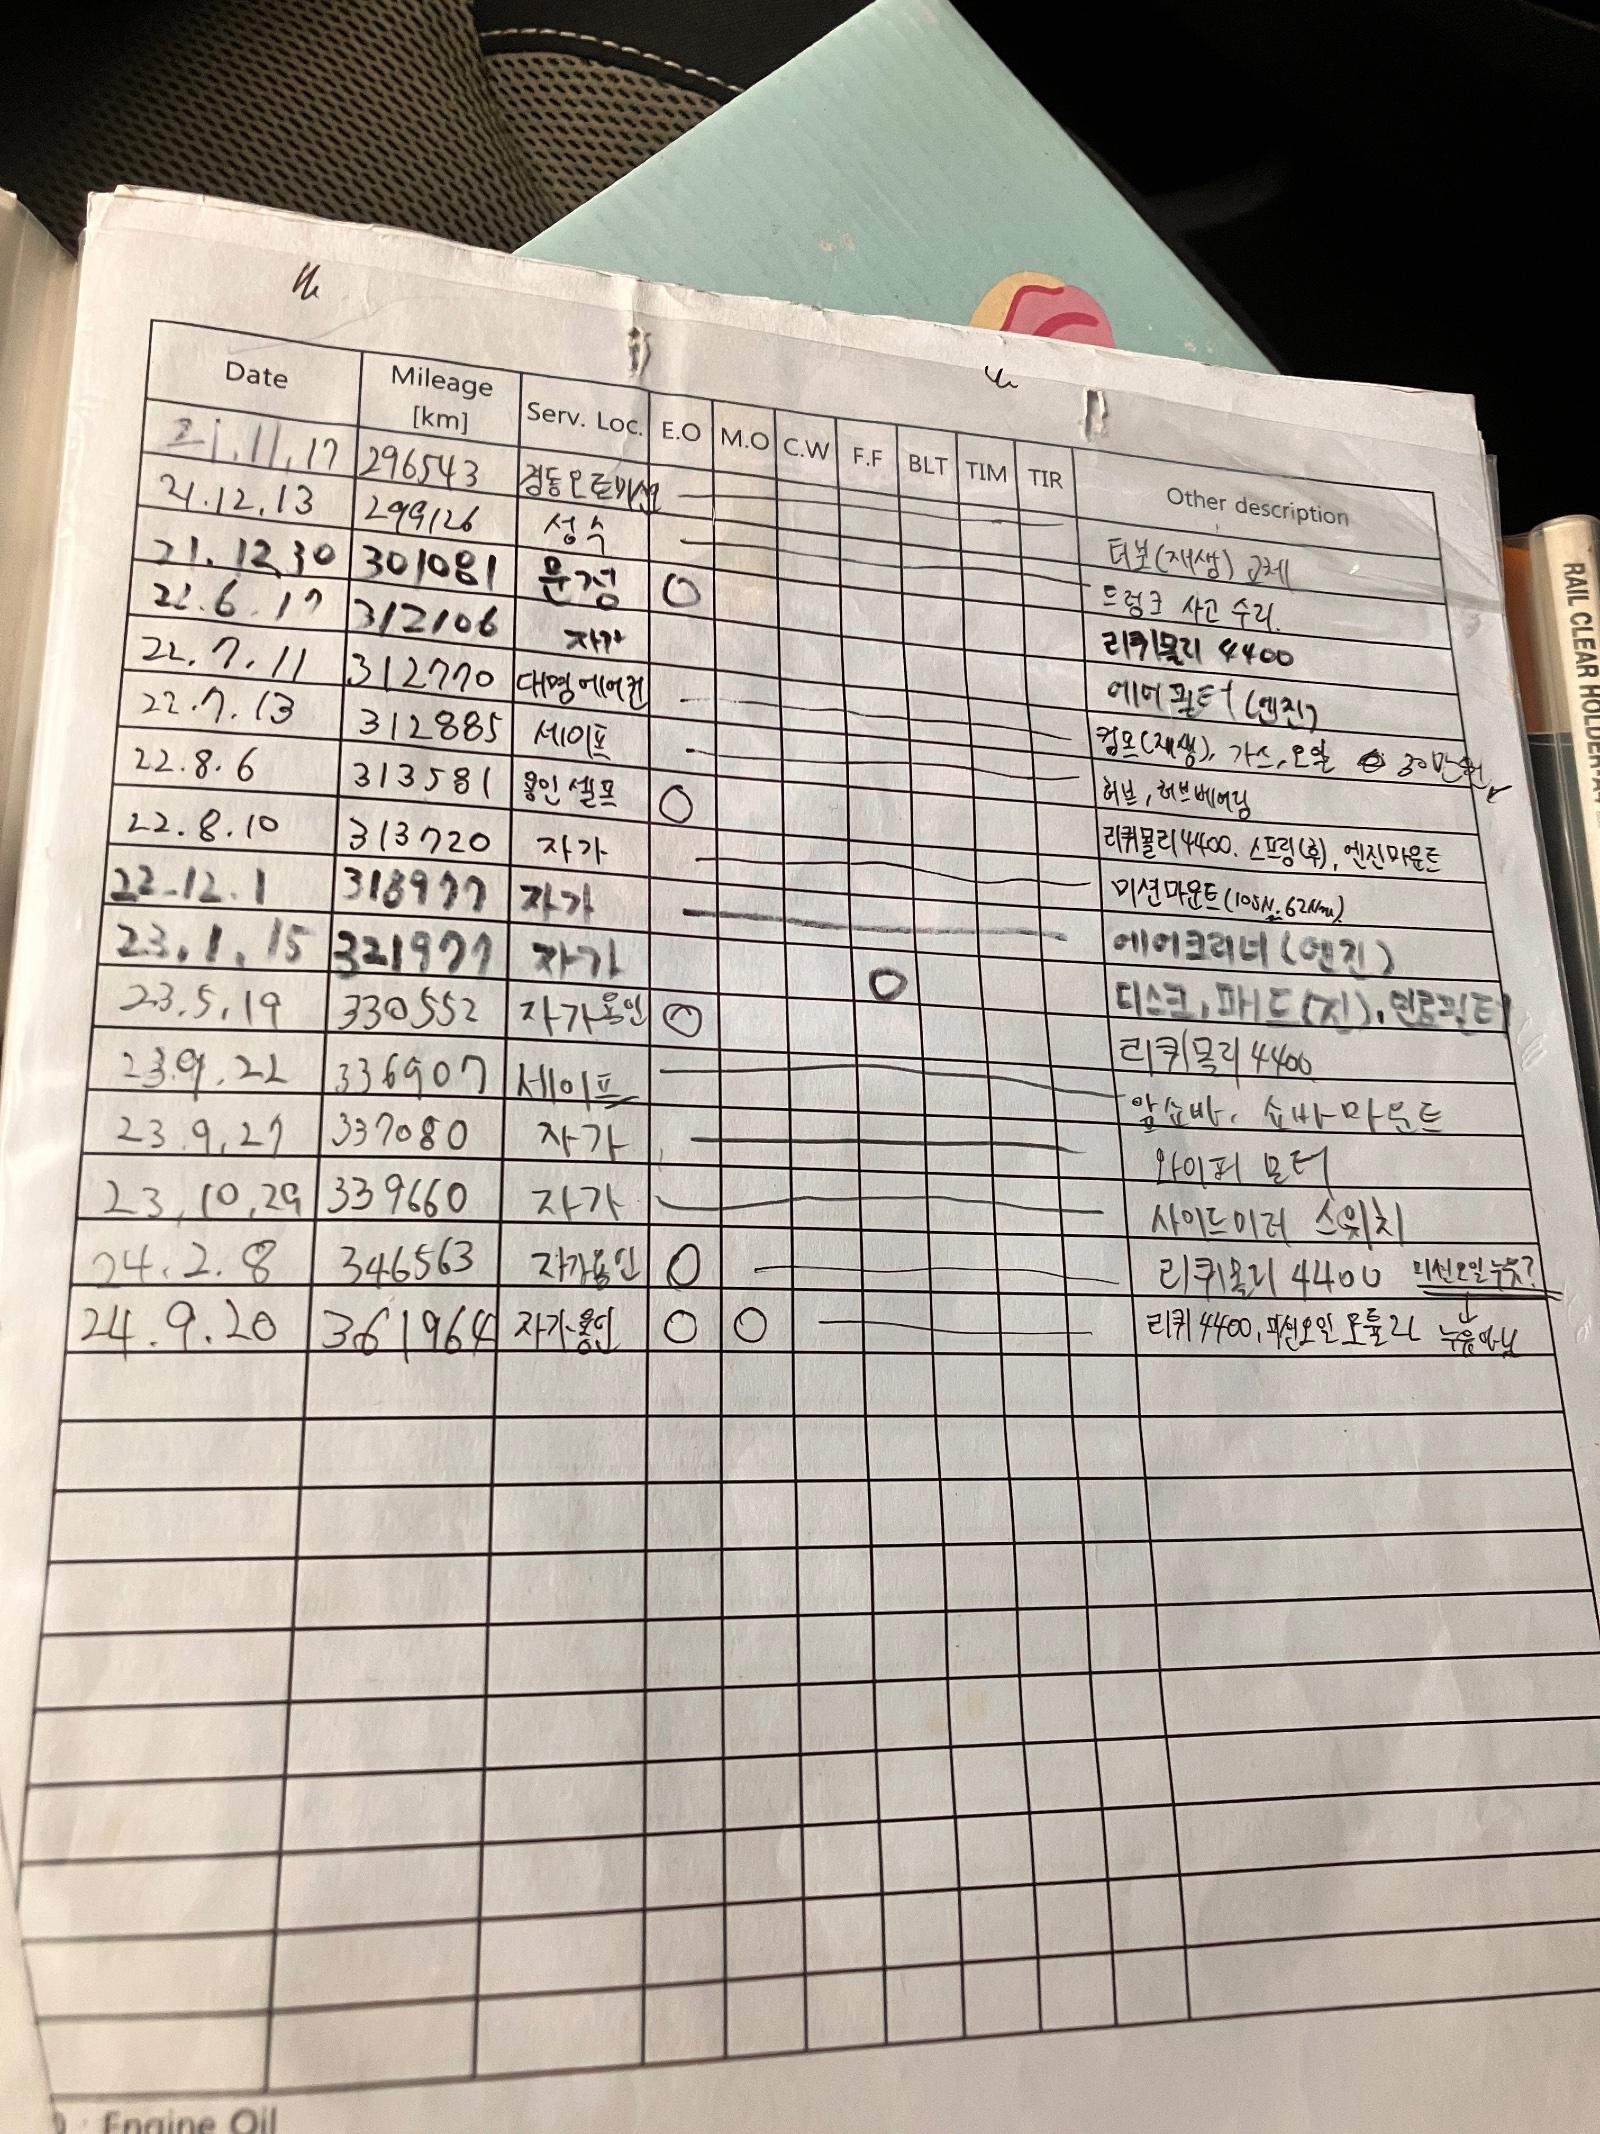 Date Mileage [km] Serv. Loc. E.O M.O C.W F.F BLT TIM TIR Other description
21.11.17 296543 경동오토미션 터보(재생) 교체
21.12.13 299126 성수 트렁크 사고 수리.
21.12.30 301081 문정 O 리퀴몰리 4400
22.6.17 312106 자가 에어필터(엔진)
22.7.11 312770 대명에어컨 컴프(재생), 가스, 오일 30만원
22.7.13 312885 세이프 허브, 허브베어링
22.8.6 313581 용인셀프 O 리퀴몰리4400. 스프링(후), 엔진마운트
22.8.10 313720 자가 미션마운트(105N, 62Nm)
22.12.1 318977 자가 에어크리너(엔진)
23.1.15 321977 자가 O 디스크, 패드(전), 연료필터
23.5.19 330552 자가용인 O 리퀴몰리4400
23.9.22 336907 세이프 앞쇼바, 쇼바마운트
23.9.27 337080 자가 와이퍼 모터
23.10.29 339660 자가 사이드미러 스위치
24.2.8 346563 자가용인 O 리퀴몰리 4400 미션오일누유?
24.9.20 361964 자가-용인 O O 리퀴4400, 미션오일 모튤리 누유아님
Engine Oil
RAIL CLEAR HOLDER-A4